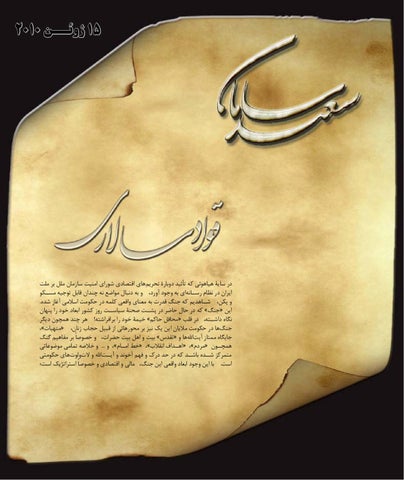 ۱۵ ژوئن ۲۰۱۰
سعید سامان
قوادسالاری
در سایهٔ هیاهوئی که تأئید دوبارهٔ تحریم‌های اقتصادی شورای امنیت سازمان ملل بر ملت
ایران در نظام رسانه‌ای به وجود آورد، و به دنبال مواضع نه چندان قابل توجیه مسکو
و پکن، شاهدیم که جنگ قدرت به معنای واقعی کلمه در حکومت اسلامی آغاز شده.
این «جنگ» که در حال حاضر در پشت صحنهٔ سیاست روز کشور ابعاد خود را پنهان
نگاه داشته، در قلب «محافل حاکم» خیمهٔ خود را برافراشته! هر چند همچون دیگر
جنگ‌ها در حکومت ملایان این یک نیز بر محورهائی از قبیل حجاب زنان، «منهیات»،
جایگاه ممتاز آیت‌الله‌ها و «تقدس» بیت و اهل بیت حضرات، و خصوصاً بر مفاهیم گنگ
همچون «مردم»، «اهداف انقلاب»، «خط امام»، و … و خلاصه تمامی موضوعاتی
متمرکز شده باشد که در حد درک و فهم آخوند و آیت‌الله و لات‌ولوت‌های حکومتی
است با این وجود ابعاد واقعی این جنگ، مالی و اقتصادی و خصوصاً استراتژیک است؛